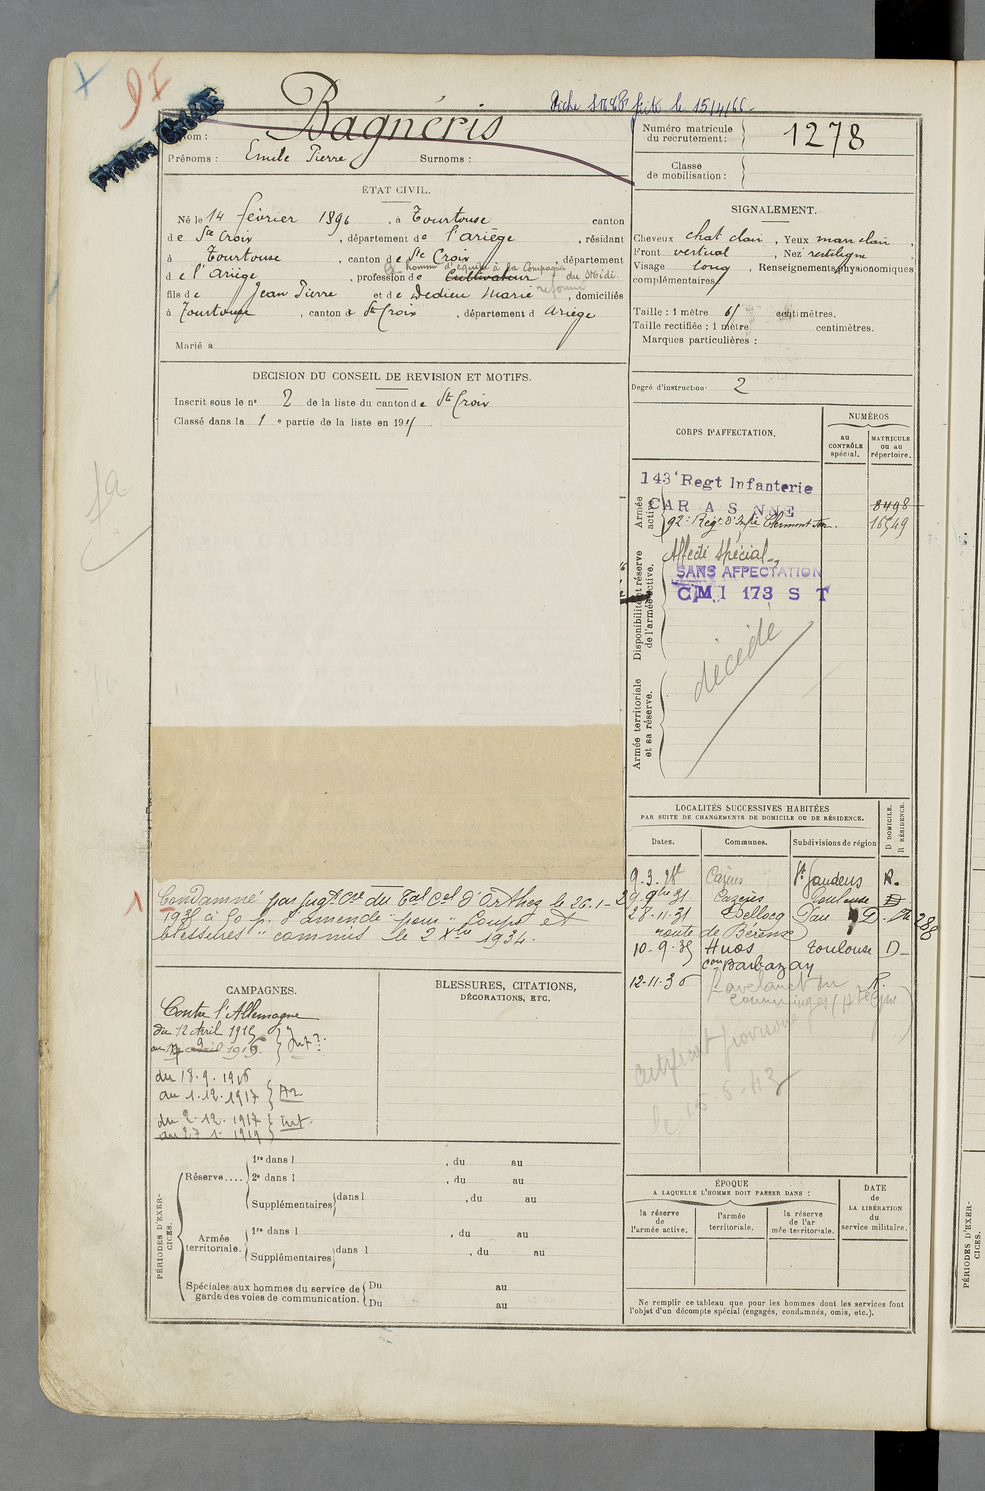 Fiche faite le 15/4/66
Bagnéris
Nom :
Prénoms : Emile Pierre Surnoms :
Numéro matricule
du recrutement : 1278
Classe
de mobilisation :
ÉTAT CIVIL.
Né le 14 février 1896, à Tourtouse canton
de Ste Croix, département de l'ariège, résidant
à Tourtouse, canton de Ste Croix, département
homme d'équipe à la Compagnie
de l'Ariège, profession de Cultivateur du Midi.
réformé
fils de Jean Pierre et de Dedieu Marie, domiciliés
à Tourtouse, canton d Ste Croix, département d Ariège
Marié à
SIGNALEMENT.
Cheveux chat clair, Yeux marr clair,
Front vertical, Nez rectiligne,
Visage long, Renseignements physionomiques
complémentaires
Taille : 1 mètre 61 centimètres.
Taille rectifiée : 1 mètre centimètres.
Marques particulières :
Degré d'instruction : 2
DÉCISION DU CONSEIL DE REVISION ET MOTIFS.
Inscrit sous le n° 2 de la liste du canton de Ste Croix
Classé dans la 1 e partie de la liste en 1915.
CORPS D'AFFECTATION.
NUMÉROS
au
CONTRÔLE
spécial.
MATRICULE
ou au
répertoire.
Armée
active.
143e Regt Infanterie
CAR A S NNE 8498
92e Regt d'Infie Clermont Fer. 16549
Disponibilité et réserve
de l'armée active.
Affecté Spécial
SANS AFFECTATION
CMI 173 S T
décédé
Armée territoriale
et sa réserve.
Condamné par jugt Cre du Tal Cel d'Orthez le 26-1-
1935 à 50 f. d'amende pour "Coups et
blessures" commis le 2 Xbre 1934.
LOCALITÉS SUCCESSIVES HABITÉES
PAR SUITE DE CHANGEMENTS DE DOMICILE OU DE RÉSIDENCE.
Dates. Communes. Subdivisions de région D DOMICILE. R RÉSIDENCE.
9.3.28 Cazères St Gaudens R.
29.9bre 31 Cazères Toulouse D
27-11-31 Bellocq Pau D
route de Bérenx
10-9-35 Huos Toulouse D
con Barbazan
12-11-36 R.
288
Certificat provisoire
le 15-5-43
CAMPAGNES.
Contre l'Allemagne
du 12 Avril 1915
au 1916. Int
du 18.9.1916
au 1.12.1917
du 2-12.1917 Int.
au 27 1- 1919
BLESSURES, CITATIONS,
DÉCORATIONS, ETC.
PÉRIODES D'EXER-
CICES.
Réserve....
1re dans l , du au
2e dans l , du au
Supplémentaires dans l , du au
Armée
territoriale.
1re dans l , du au
Supplémentaires dans l , du au
Spéciales aux hommes du service de
garde des voies de communication.
Du au
Du au
ÉPOQUE
A LAQUELLE L'HOMME DOIT PASSER DANS :
la réserve
de
l'armée active.
l'armée
territoriale.
la réserve
de l'ar
mée territoriale.
DATE
de
LA LIBÉRATION
du
service militaire.
Ne remplir ce tableau que pour les hommes dont les services font
l'objet d'un décompte spécial (engagés, condamnés, omis, etc.).
PÉRIODES D'EXER-
CICES.